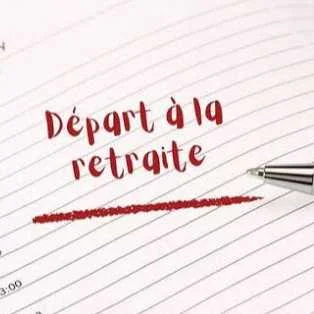 Départ à la
retraite
3:00